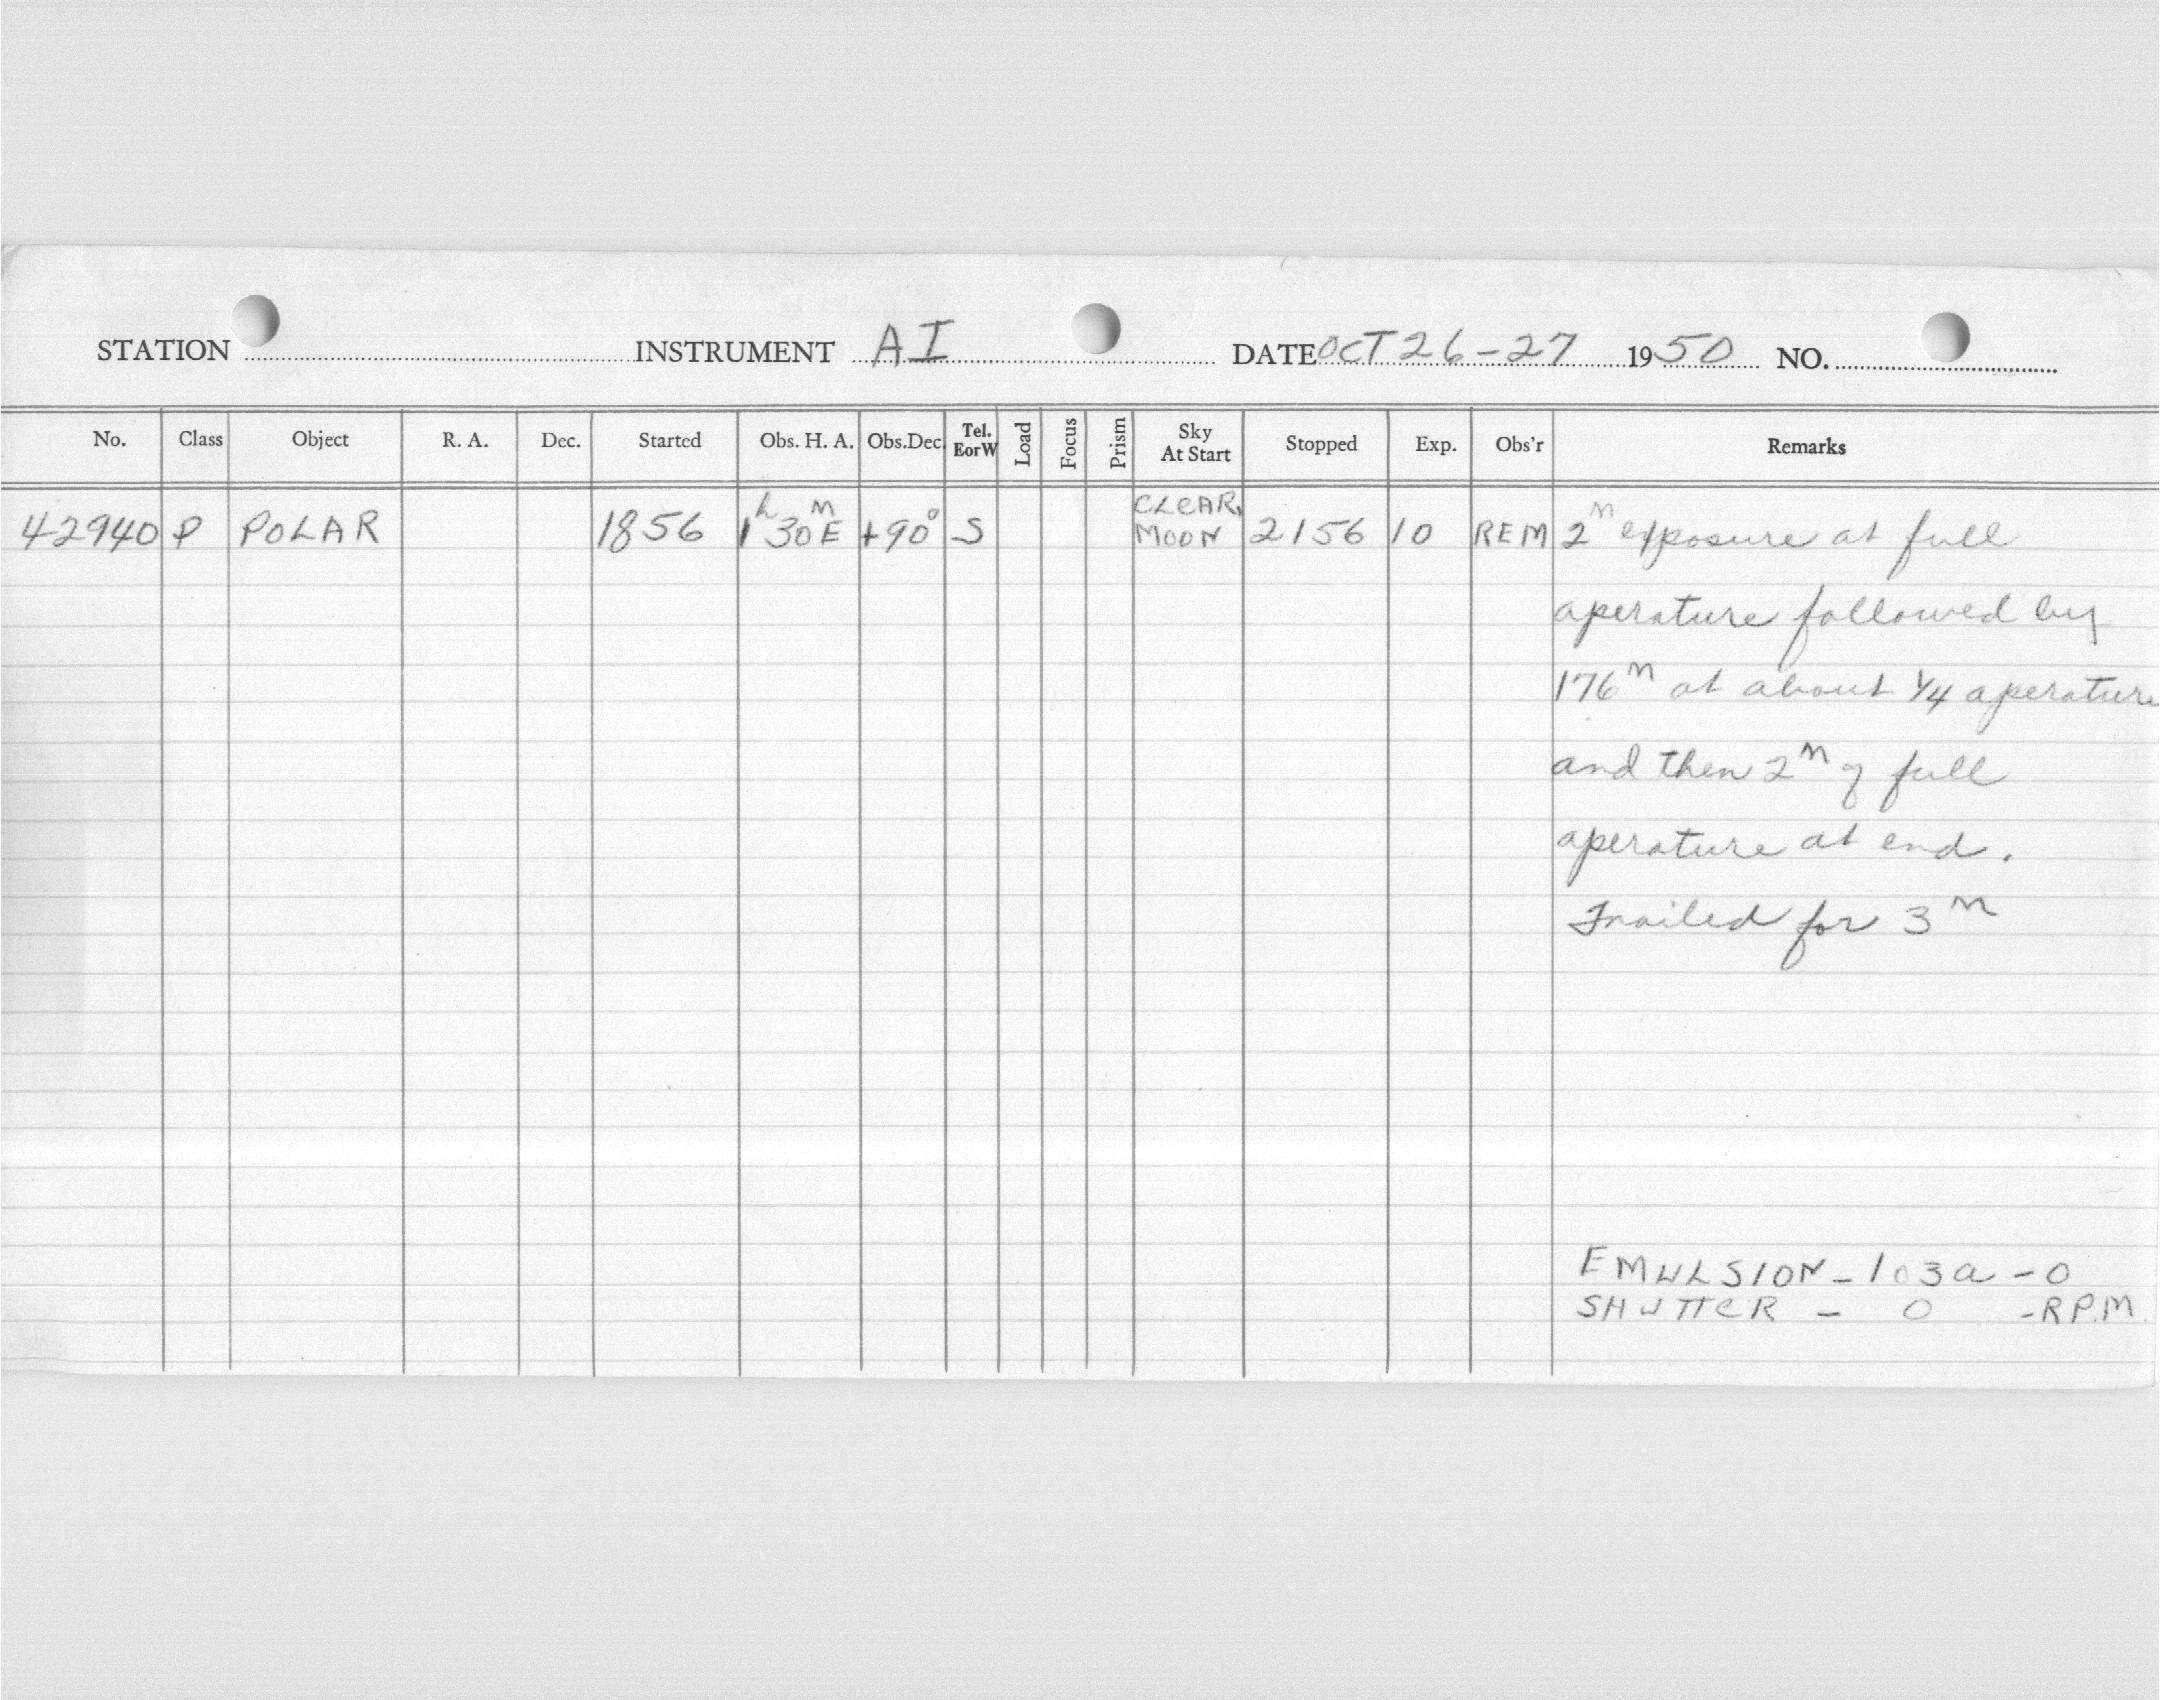 STATION INSTRUMENT AI DATE OCT 26-27 1950 NO.
No. Class Object R. A. Dec. Started Obs. H. A. Obs.Dec. Tel. EorW Load Focus Prism Sky At Start Stopped Exp. Obs'r Remarks
42940 P POLAR 1856 1h 30m E +90° S CLEAR, MOON 2156 10 REM 2m exposure at full
aperature followed by
176m at about 1/4 aperature
and then 2m of full
aperature at end.
Trailed for 3m
EMULSION - 103a - O
SHUTTER - 0 - R.P.M.